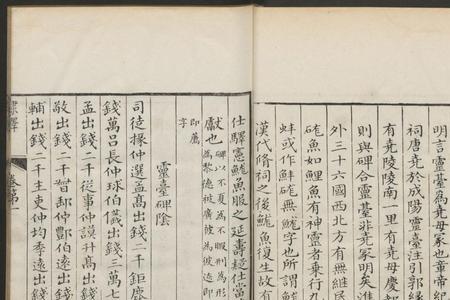 明言靈臺為堯母冢也章帝紀
祠唐堯於成陽靈臺注引郭緣
有堯陵陵南一里有堯母慶
則與碑合靈臺非堯冢明矣
外三十六國西北方有無
魚如鯉魚有神靈者乘行九
蚌或作鮮無字也所謂
漢代脩祠之後魚復生故有
仕驛憲魚服之延壽疑仕當
獻也
碑以不夏為不暇刑為形
為黎德被廣被為彼遠即
即薦
字
靈臺碑陰
司徒掾仲選孟高出錢二千鉅鹿
錢萬呂長仲球伯儀出錢三萬七
孟出錢二千從事仲謨升高出錢
敬出錢二千督郵仲伯遠出錢
輔出錢二千主吏仲均季遠出錢
隸釋
卷第一